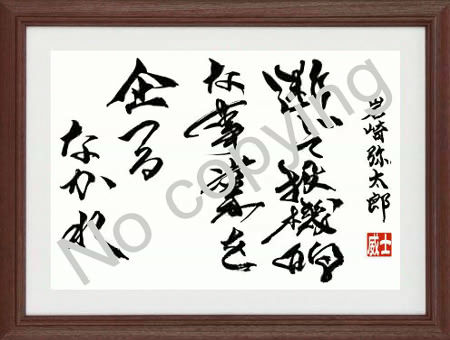 岩崎弥太郎
士威
断じて投機的
な事業を
企つる
なかれ
No copying